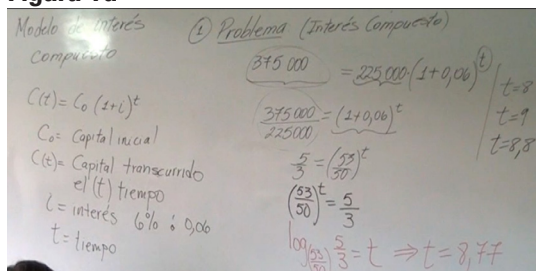 Modelo de interés
compuesto
C(t) = C₀ (1+i)^t
C₀ = Capital inicial
C(t) = Capital transcurrido
el (t) tiempo
i = interés 6% ó 0,06
t = tiempo
① Problema (Interés Compuesto)
375 000 = 225 000·(1+0,06)^t
375 000/225000 = (1+0,06)^t
5/3 = (53/50)^t
(53/50)^t = 5/3
log_(53/50) 5/3 = t ⇒ t = 8,77
t=8
t=9
t=8,8